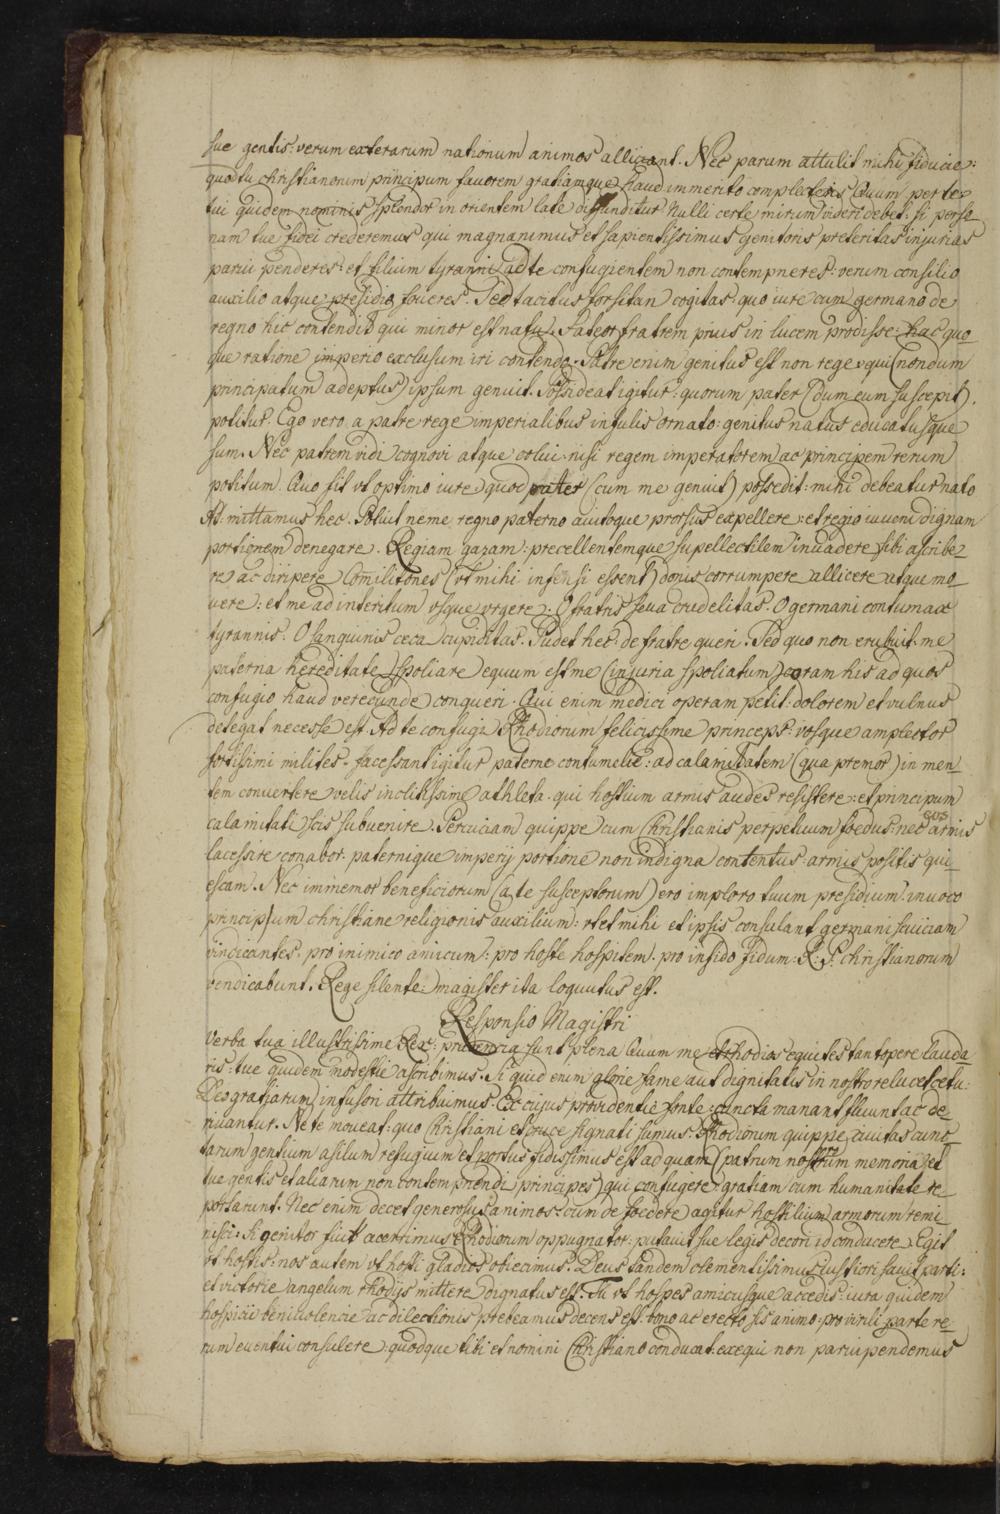 sue gentis: verum exterarum nationum animos alliciant. Nec parum attulit mihi fiducie:
quod tu christianorum principum favorem gratiamque haud immerito complecteris. Quum per te
tui quidem nominis splendor in orientem late diffunditur. Nulli certe mirum videri debet: si perso-
nam tue fidei crederemus qui magnanimus et sapientissimus genitoris preteritas injurias
parui penderes: et filium tyranni ad te confugientem non contempneres: verum consilio
auxilio atque presidio foveres. Sed tacitus forsitan cogitas: quo iure cum germano de
regno hic contendit qui minor est natu. Fateor fratrem prius in lucem prodisse: hac quo-
que ratione imperio exclusum iri contendo. Patre enim genitus est non rege: qui (nondum
principatum adeptus) ipsum genuit. Possideat igitur: quorum pater (dum eum suscepit).
potitur. Ego vero a patre rege imperialibus insulis ornato: genitus natus educatusque
sum. Nec patrem vidi cognovi atque colui: nisi regem imperatorem ac principem rerum
potitum. Quo fit vt optimo iure quod pater (cum me genuit) possedit: mihi debeatur nato
At mittamus hec. Potuit ne me regno paterno avitoque prorsus expellere: et regio iuveni dignam
portionem denegare. Regiam gazam: precellentemque supellectilem invadere sibi ascribe-
re ac diripere Comilitones (vt mihi infensi essent) donis corrumpere allicere atque mo-
vere: et me ad interitum vsque vrgere: O fratris seva crudelitas. O germani contumax
tyrannis. O sanguinis ceca cupiditas. Pudet hec de fratre queri. Sed quo non erubuit me
paterna hereditate spoliare equum est me (injuria spoliatum) coram his ad quos
confugio haud verecunde conqueri. Qui enim medici operam petit: dolorem et vulnus
detegat necesse est. Ad te confugi Rhodiorum felicissime princeps: vosque amplector
fortissimi milites. facessant igitur paterne contumelie: ad calamitatem (qua premor) in men-
tem convertere velis inclitissime athleta. qui hostium armis audes resistere: et principum
calamitati scis subvenire. Percuciam quippe cum Christianis perpetuum foedus: nec eos armis
lacessire conabor. paternique imperij portione non indigna contentus: armis positis qui-
escam. Nec iminemor beneficiorum (a te susceptorum) ero imploro tuum presidium: invoco
principum christiane religionis auxilium: vt et mihi et ipsis consulant germani sæviciam
vindicantes. pro inimico amicum: pro hoste hospitem. pro infido fidum: R: P: christianorum
vendicabunt. Rege silente: magister ita loquutus est.
Responsio Magistri
Verba tua illustrissime Rex: prudencia sunt plena Quum me et Rhodios equites tantopere lauda-
ris: tue quidem modestie ascribimus. Si quid enim glorie fame aut dignitatis in nostro relucet cetu:
Deo gratiarum infusori attribuimus. Ex cujus providentie fonte: cuncta manant fluunt ac de-
rivantur. Ne te moveat: quo Christiani et cruce signati sumus. Rhodiorum quippe civitas cunc-
tarum gentium asilum refugium et portus fidissimus est ad quam (patrum nostrum memoria) et
tue gentis et aliarum non contemnendi principes) qui confugere: gratiam cum humanitate re-
portarunt. Nec enim decet generosus animos: cum de foedere agitur hostilium armorum remi-
nisci. Si genitor fuit acerrimus Rhodiorum oppugnator: putavit sue legis decori id conducere. Egit
vt hostis: nos autem vt hosti gladios obiecimus. Deus tandem clementissimus iustiori favit parti:
et victorie angelum Rhodijs mittere dignatus est. Tu vt hospes amicusque accedis: iura quidem
hospicii benivolencie ac dilectionis prebeamus decens est. bono ac erecto sis animo: pro virili parte re-
rum eventui consulere: quodque tibi et nomini Christiano conducat: exequi non parvipendemus